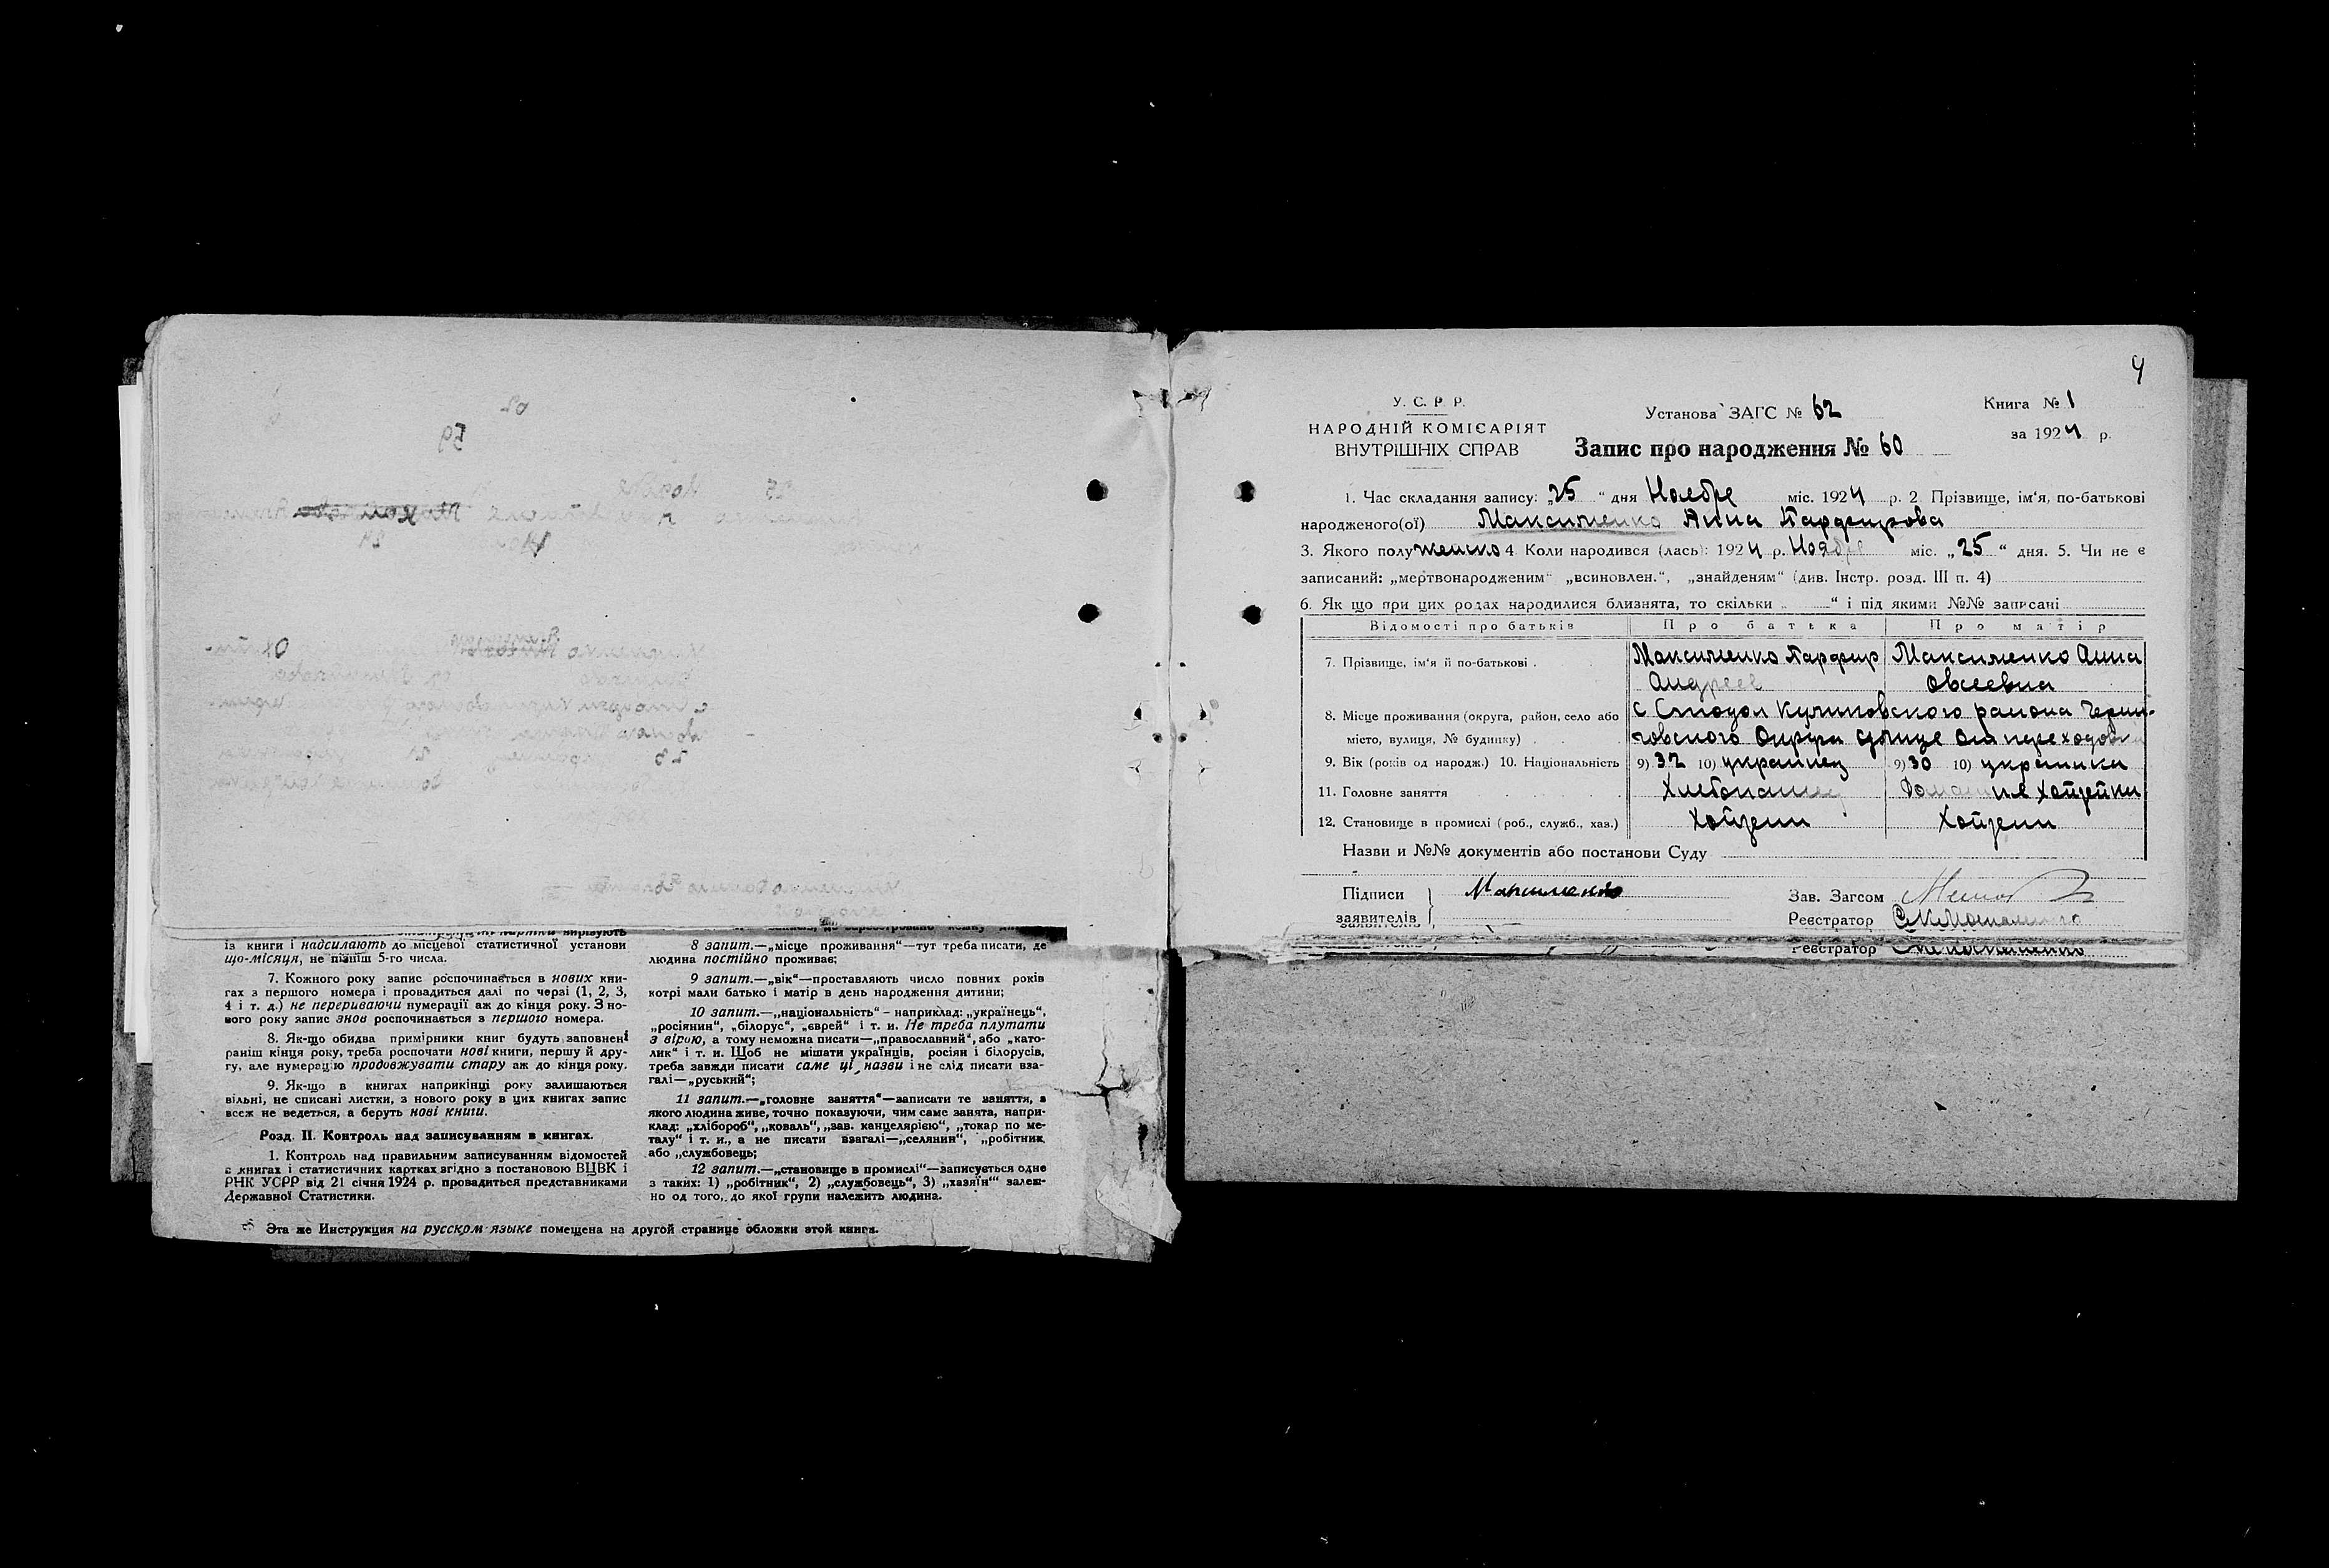 із книги і надсилають до місцевої статистичної установи
що-місяця, не пізніш 5-го числа.
7. Кожного року запис роспочинається в нових кни-
гах з першого номера і провадиться далі по черзі (1, 2, 3,
4 і т. д.) не перериваючи нумерації аж до кінця року. З но-
вого року запис знов роспочинається з першого номера.
8. Як-що обидва примірники книг будуть заповнені
раніш кінця року, треба роспочати нові книги, першу й дру-
гу, але нумерацію продовжувати стару аж до кінця року.
9. Як-що в книгах наприкінці року залишаються
вільні, не списані листки, з нового року в цих книгах запис
всеж не ведеться, а беруть нові книги.
Розд. II. Контроль над записуванням в книгах.
1. Контроль над правильним записуванням відомостей
в книгах і статистичних картках згідно з постановою ВЦВК і
РНК УСРР від 21 січня 1924 р. провадиться представниками
Державної Статистики.
8 запит.—„місце проживання“—тут треба писати, де
людина постійно проживає;
9 запит.—„вік“—проставляють число повних років
котрі мали батько і матір в день народження дитини;
10 запит.—„національність“ – наприклад: „українець“,
„росіянин“, „білорус“, „єврей“ і т. и. Не треба плутати
з вірою, а тому неможна писати—„православний“, або „като-
лик“ і т. и. Щоб не мішати українців, росіян і білорусів,
треба завжди писати саме ці назви і не слід писати вза-
галі—„руський“;
11 запит.—„головне заняття“—записати те заняття, з
якого людина живе, точно показуючи, чим саме занята, напри-
клад: „хлібороб“, „коваль“, „зав. канцелярією“, „токар по ме-
талу“ і т. и., а не писати взагалі—„селянин“, „робітник
або „службовець;
12 запит.—„становище в промислі“—записується одне
з таких: 1) „робітник“, 2) „службовець“, 3) „хазяїн“ залеж-
но од того, до якої групи належить людина.
Эта же Инструкция на русском языке помещена на другой странице обложки этой книги.
4
У. С. Р. Р.
НАРОДНІЙ КОМІСАРІЯТ
ВНУТРІШНІХ СПРАВ
Установа ЗАГС № 62
Запис про народження № 60
Книга № 1
за 1924 р.
1. Час складання запису: „25“ дня Ноебре міс. 1924 р. 2 Прізвище, ім‘я, по-батькові
народженого(ої) Максименко Анна Парфирова
3. Якого полу женско 4 Коли народився (лась): 1924 р. Ноябре міс. „25“ дня. 5. Чи не є
записаний: „мертвонародженим“ „всиновлен.“, „знайденям“ (див. Інстр. розд. III п. 4)
6. Як що при цих родах народилися близнята, то скільки „ “ і під якими №№ записані
Відомості про батьків Про батька Про матір
7. Прізвище, ім‘я й по-батькові Максименко Парфир Максименко Анна
Андреев Овсеевна
8. Місце проживання (округа, район, село або с Стодол Куликовского раиона Черни-
місто, вулиця, № будинку) говского Округа
9. Вік (років од народж.) 10. Національність 9) 32 10) украинец 9) 30 10) украинка
11. Головне заняття Хлебопашец Хойзейки
12. Становище в промислі (роб., служб., хаз.) Хойзеин Хойзеин
Назви и №№ документів або постанови Суду
Підписи Максименко Зав. Загсом
заявителів Реєстратор
Реєстратор